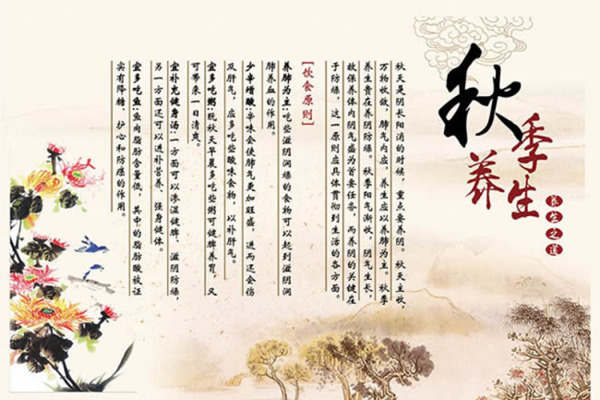 秋季养生
生之道
秋天是阴长阳消的时候，重点要养阴。秋天主收，
万物收敛，肺气内应，养生应以养肺为主。秋季
养生贵在养阴防燥。秋季阳气渐收，阴气生长，
故保养体内阴气盛为首要任务，而养阴的关键在
于防燥，这一原则应具体贯彻到生活的各方面。
【饮食原则】
养肺为主：吃些滋阴润燥的食物可以起到滋阴润
肺养血的作用。
少辛增酸：辛味会使肺气更加旺盛，进而还会伤
及肝气，应多吃些酸味食物，以补肝气。
宜多吃粥：既秋天早晨多吃些粥可健脾养胃，又
可带来一日清爽。
宜补充健身汤：一方面可以渗湿健脾、滋阴防燥，
另一方面还可以进补营养、强身健体。
宜多吃鱼：鱼肉脂肪含量低，其中的脂肪酸被证
实有降糖、护心和防癌的作用。